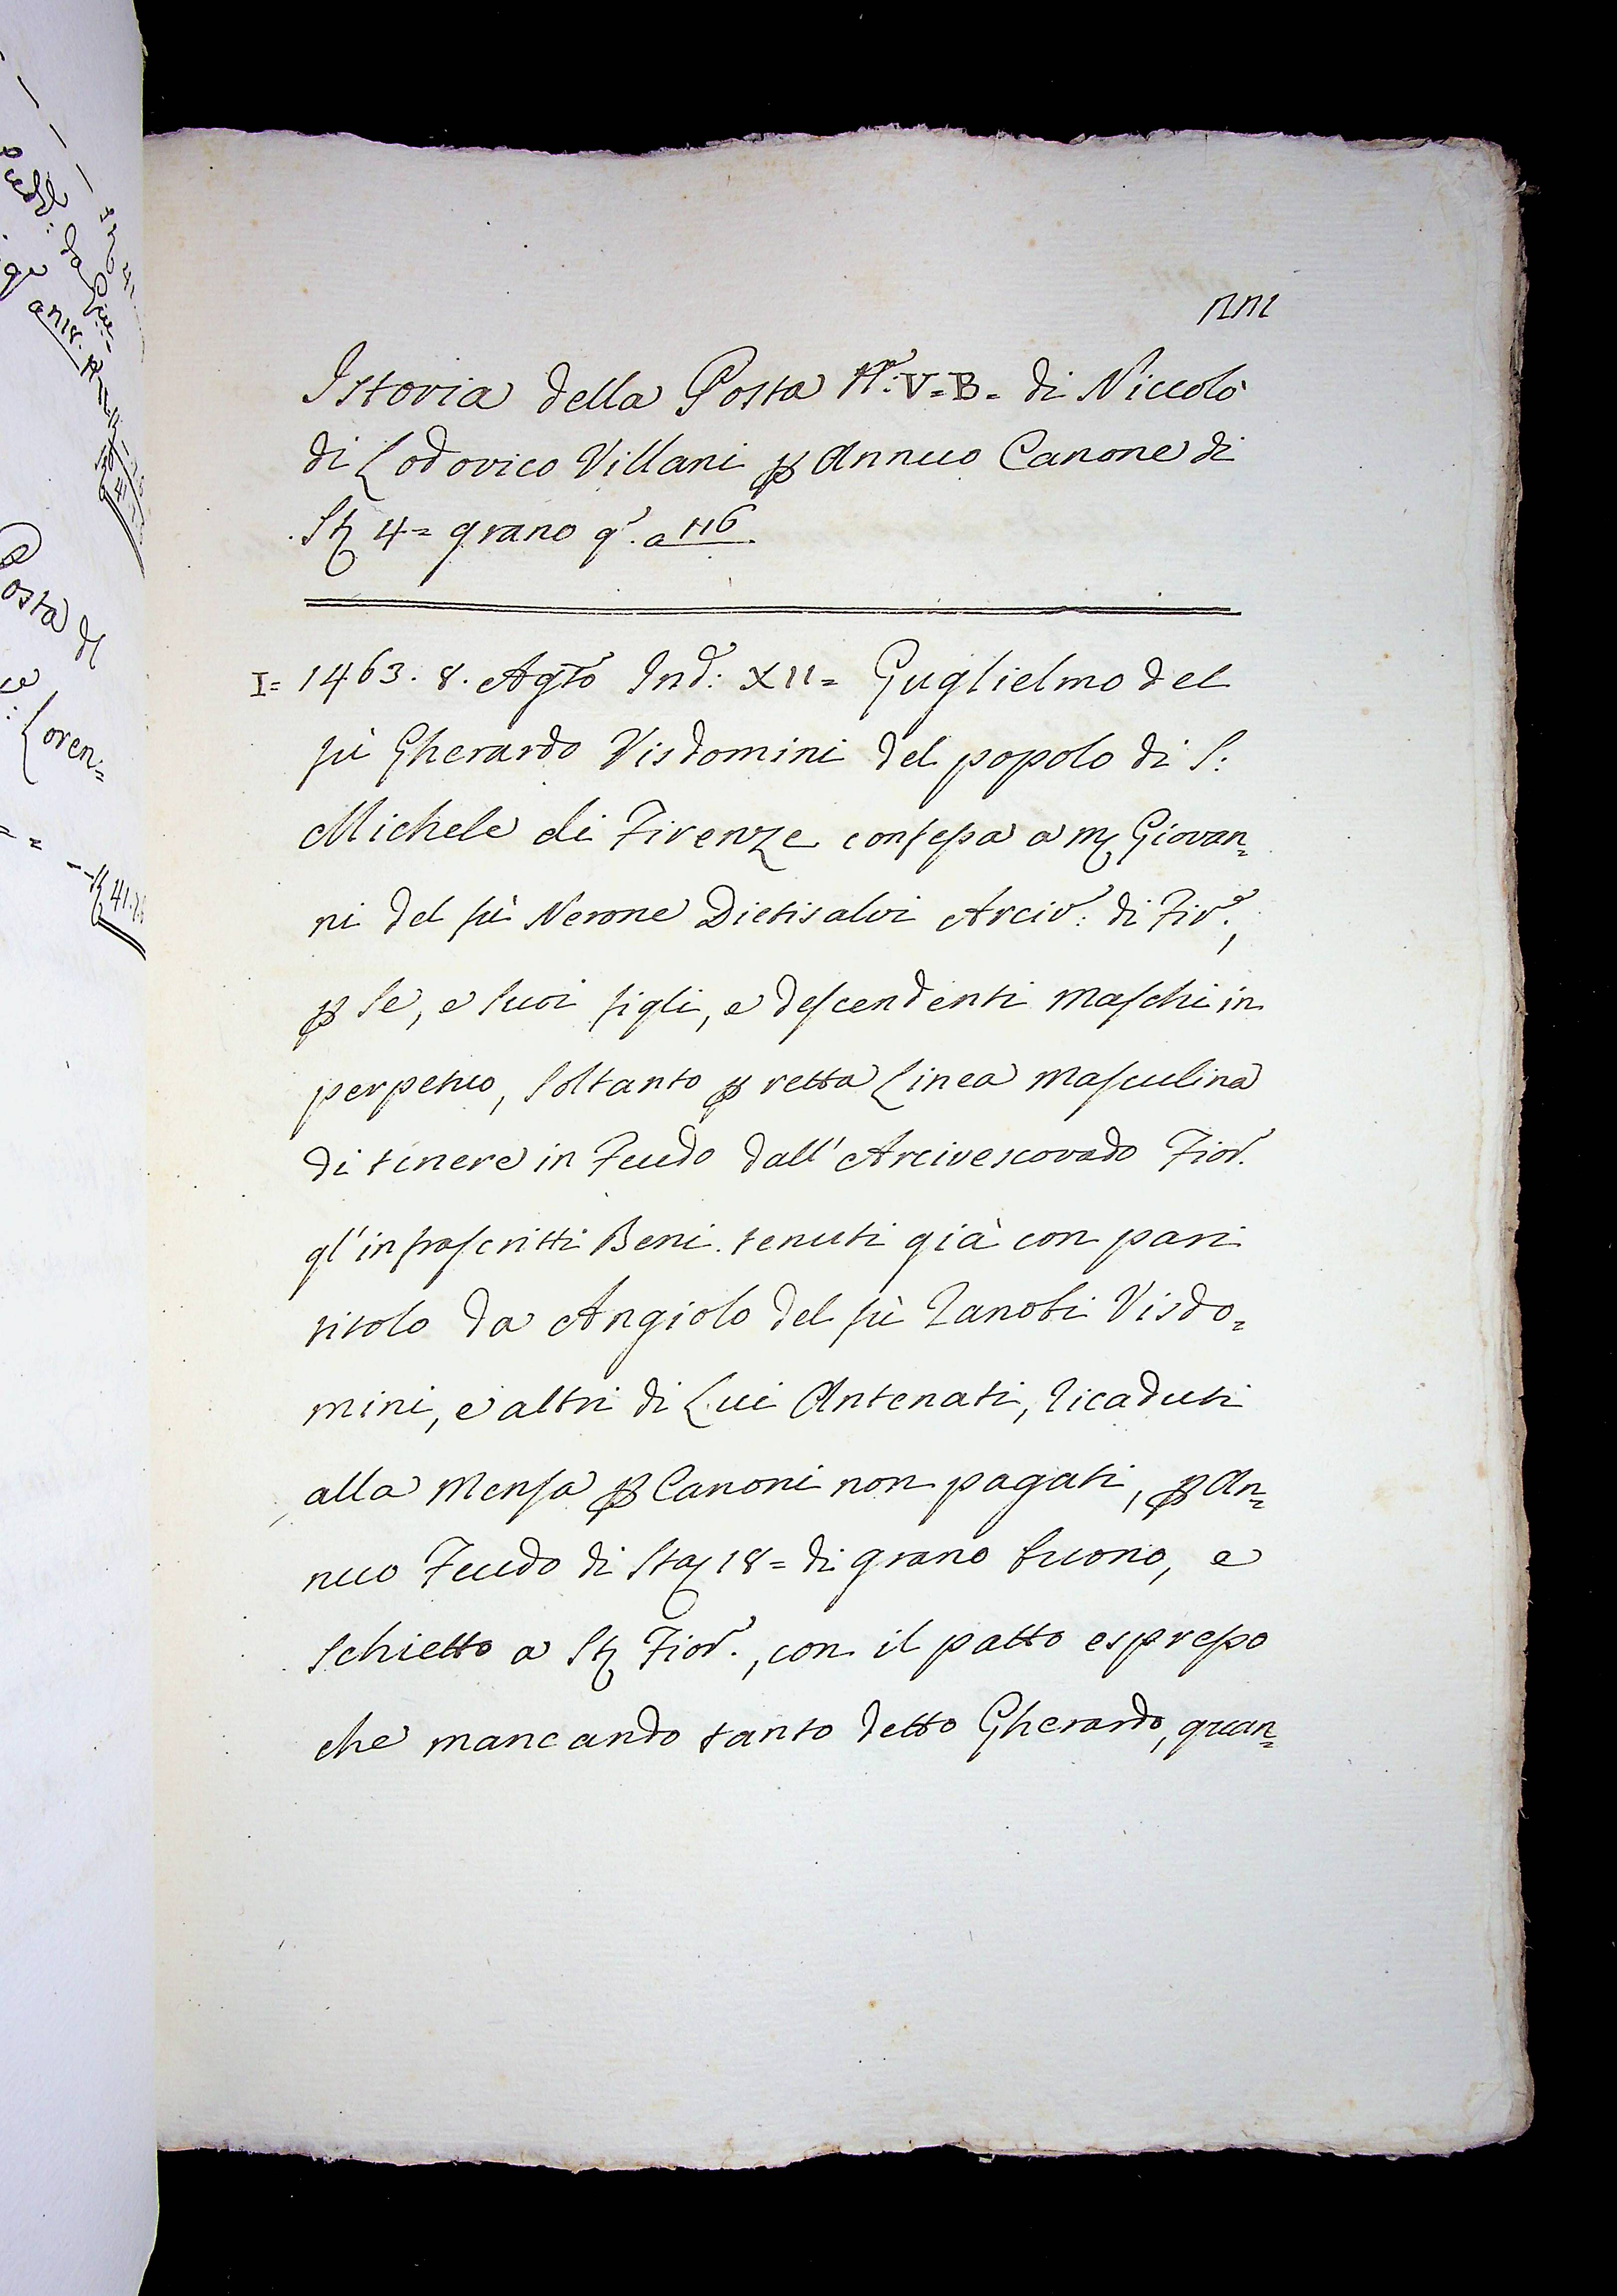 Istoria della Posta N.º: V=B= di Niccolò
di Lodovico Villani p Annuo Canone di
St 4= grano q.º a 116
I= 1463. 8. Agto Ind: XII= Guglielmo del
fù Gherardo Visdomini del popolo di S:
Michele di Firenze confessa a m Giovan=
ni del fù Nerone Dietisalvi Arciv: di Fir.e,
p se, e suoi figli, e descendenti maschi in
perpetuo, soltanto p retta Linea masculina
di tenere in Feudo dall'Arcivescovado Fior.
gl'infrascritti Beni tenuti già con pari
titolo da Angiolo del fù Zanobi Visdo=
mini, e altri di Lui Antenati, ricaduti
alla Mensa p Canoni non pagati, p An=
nuo Feudo di Sta 18= di grano buono, e
schietto a St Fior., con il patto espresso
che mancando tanto detto Gherardo, quan=
osta di
Loren=